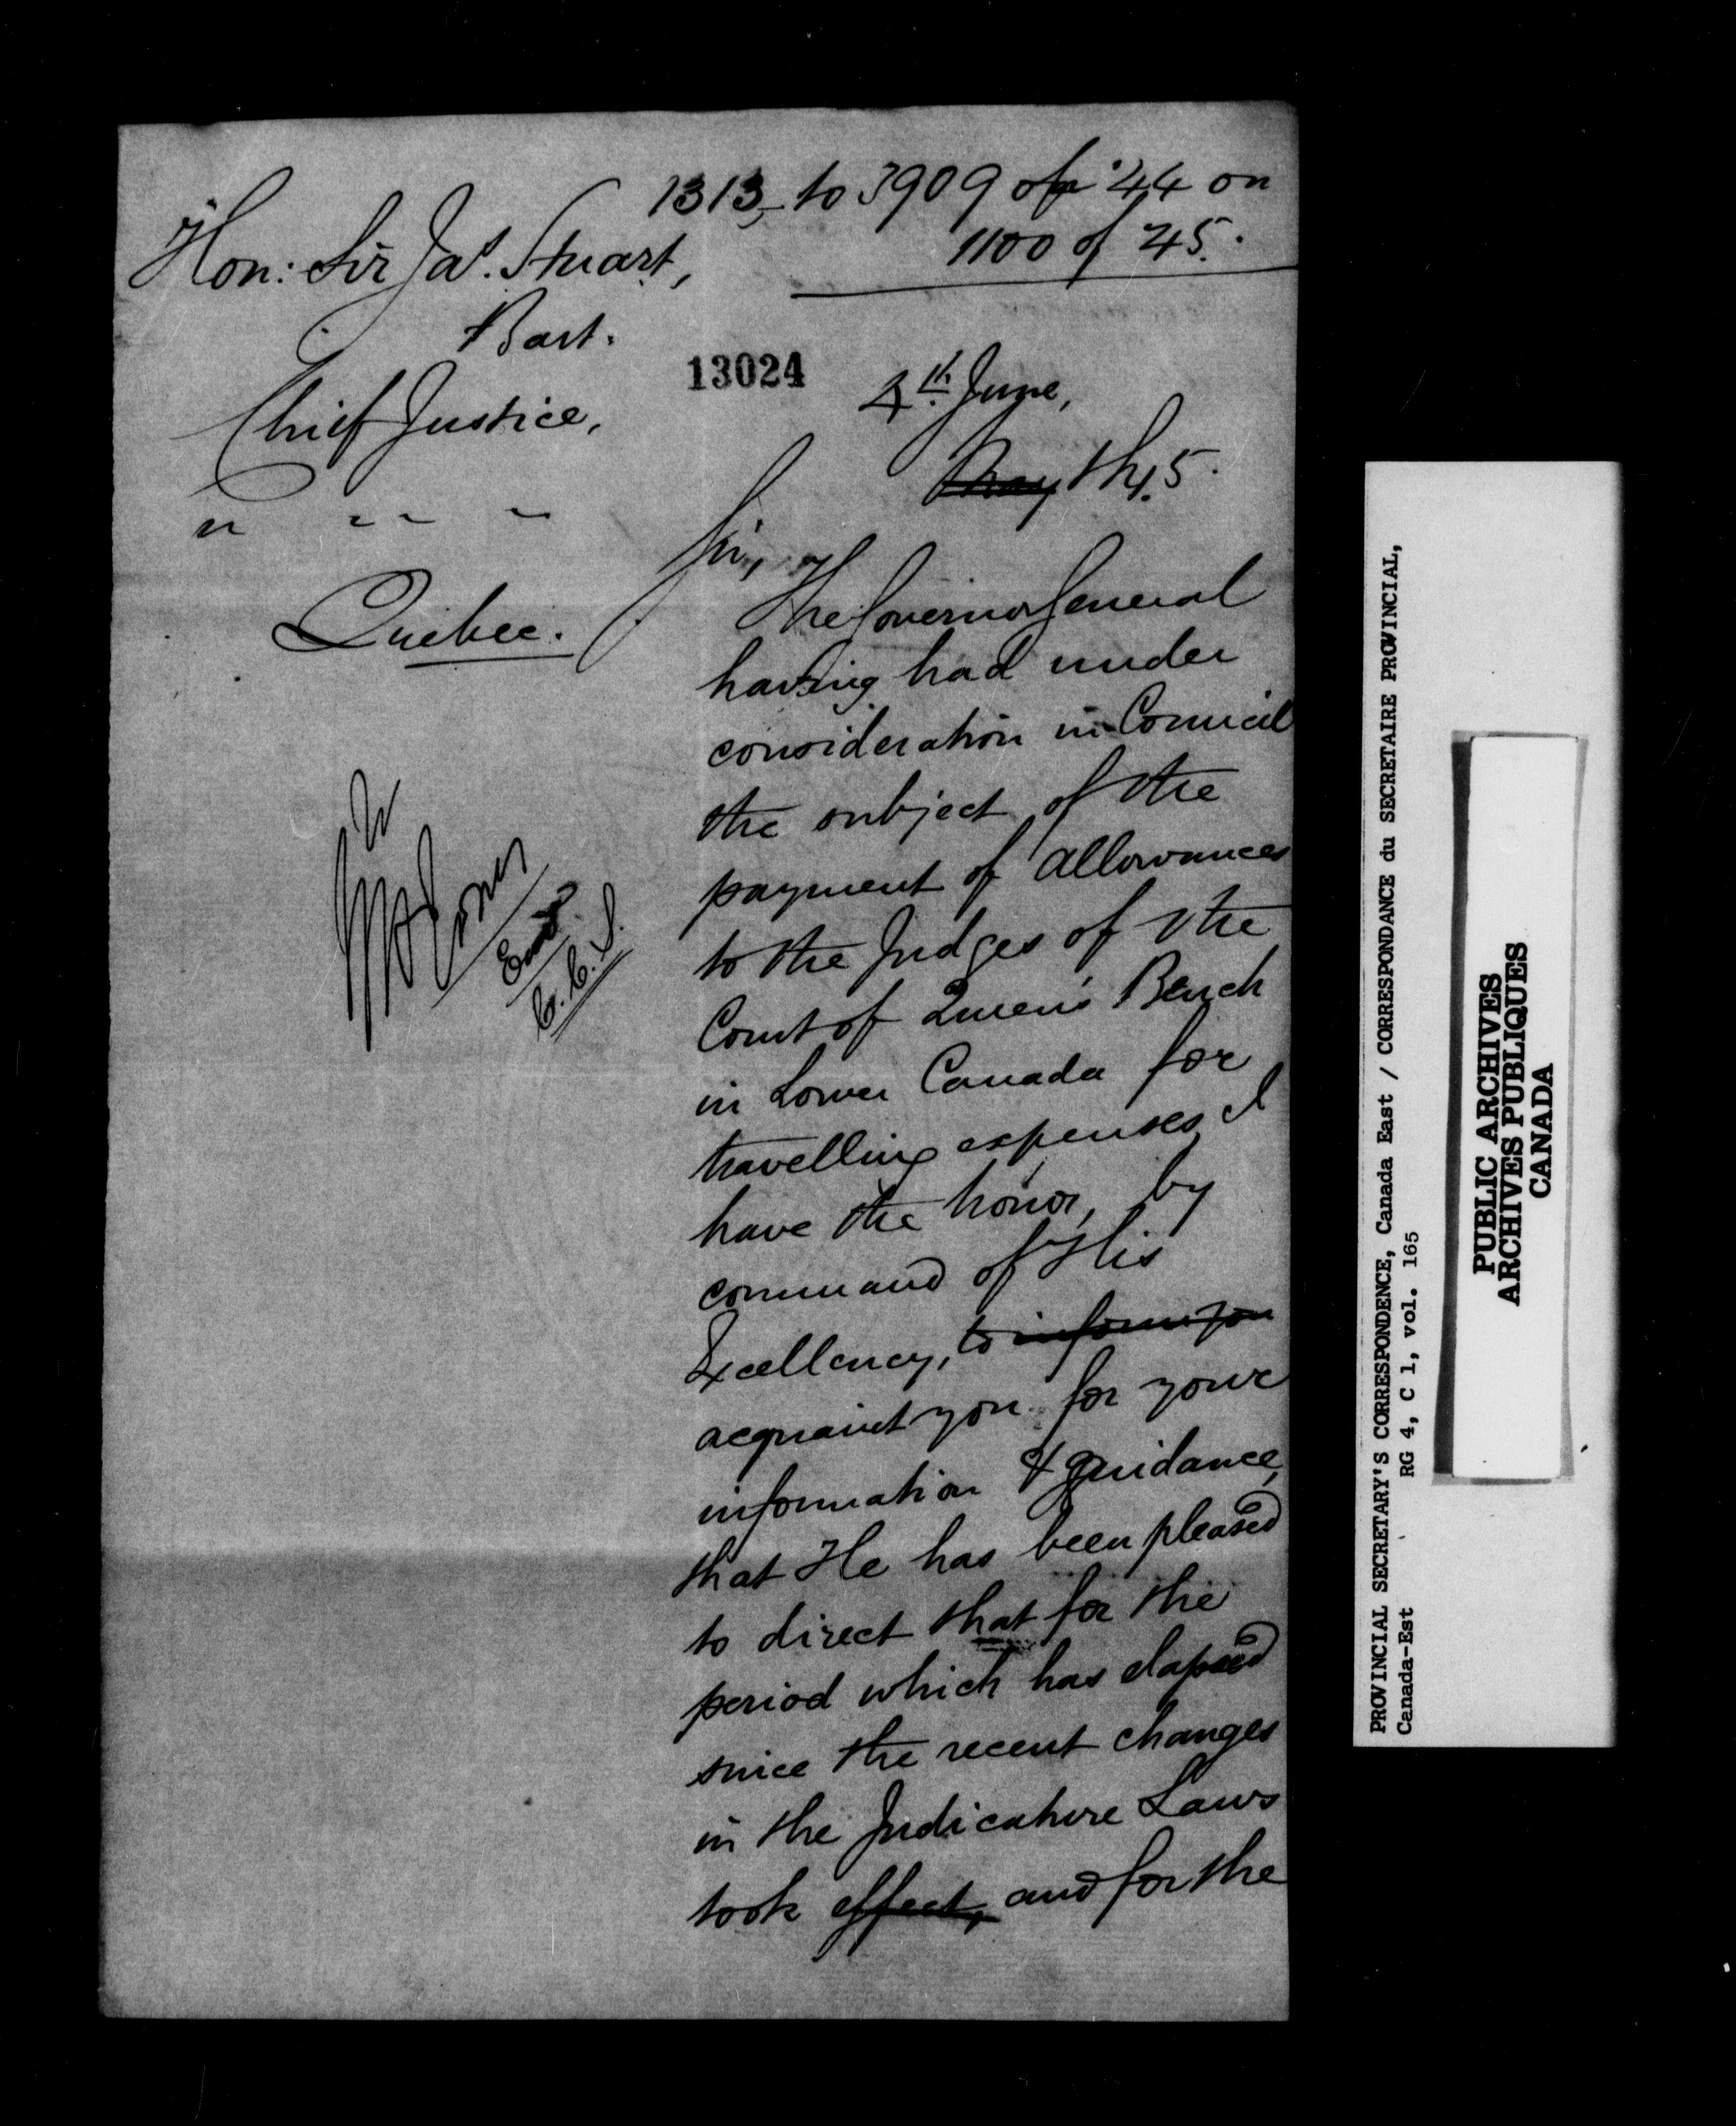 1313, to 3909 of '44 on
1100 of 45.
Hon: Sir Jas. Stuart,
Bart.
Chief Justice,
" " " "
Quebec.
13024
4th June,
May th 45.
Sir,
The Governor General
having had under
consideration in Council
the subject of the
payment of allowances
to the Judges of the
Court of Queen's Bench
in Lower Canada for
travelling expenses, I
have the honor, by
command of His
Excellency, to inform you
acquaint you for your
information & guidance,
that He has been pleased
to direct that for the
period which has elapsed
since the recent changes
in the Judicature Laws
took effect, and for the
PROVINCIAL SECRETARY'S CORRESPONDENCE, Canada East / CORRESPONDANCE du SECRETAIRE PROVINCIAL,
Canada-Est RG 4, C 1, vol. 165
PUBLIC ARCHIVES
ARCHIVES PUBLIQUES
CANADA